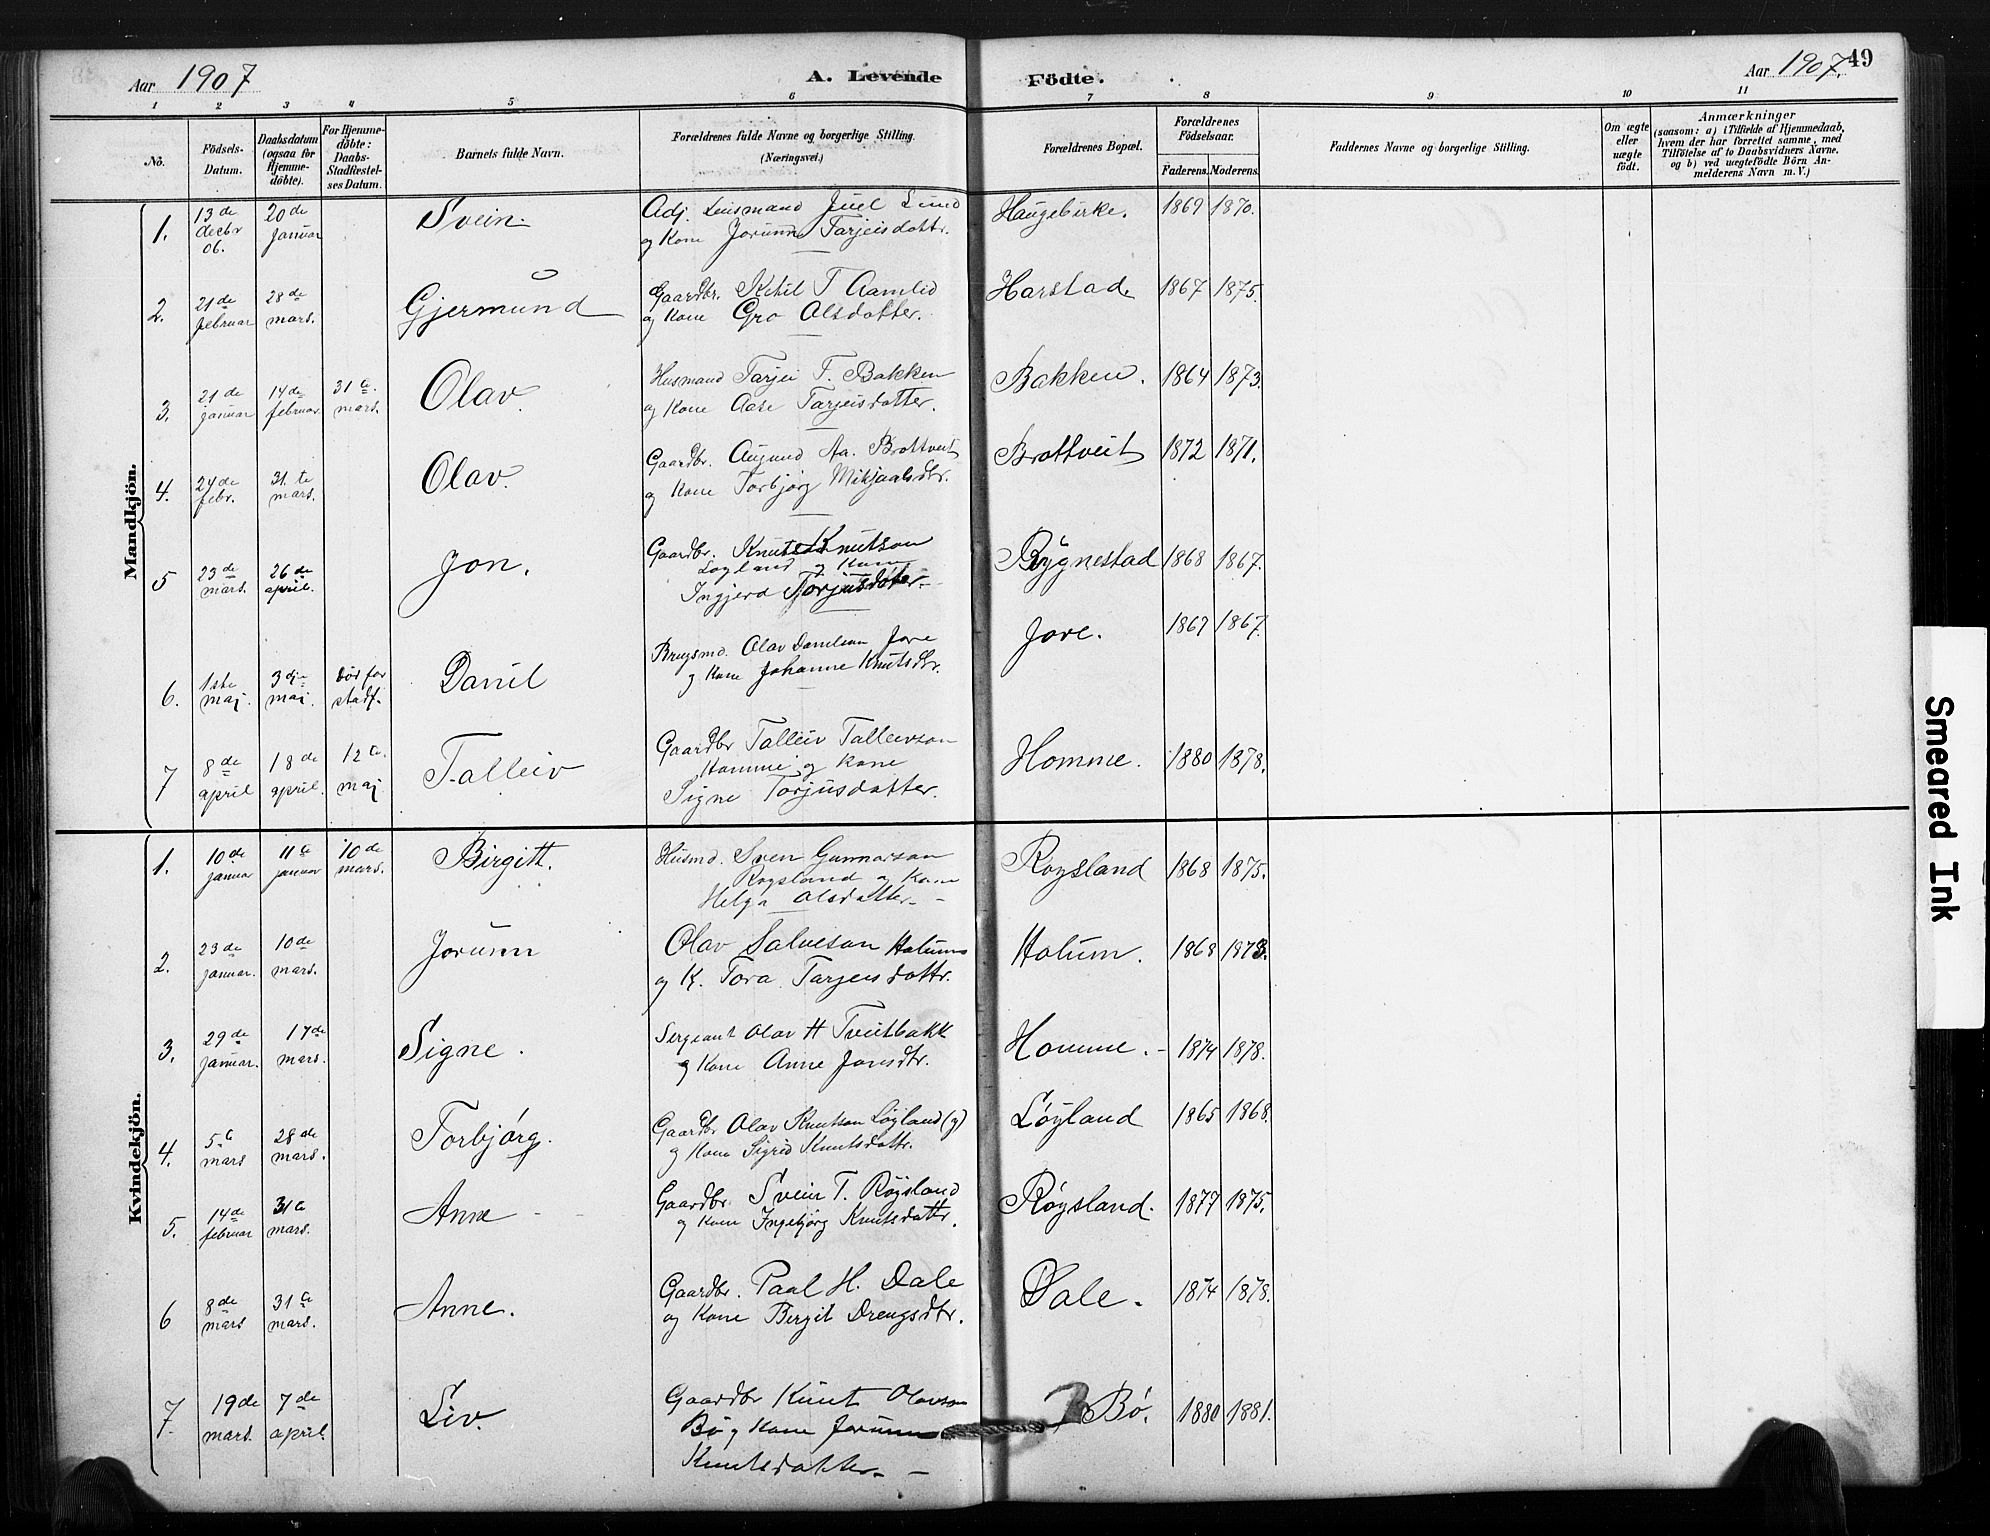 Aar 1907
A. Levende Födte.
Aar 1907. 49
1 2 3 4 5 6 7 8 9 10 11
No.
Födsels-
Datum.
Daabsdatum
(ogsaa for
Hjemme-
døbte).
For Hjemme-
døbte:
Daabs-
Stadfæstel-
ses Datum.
Barnets fulde Navn.
Forældrenes fulde Navne og borgerlige Stilling.
(Næringsvei.)
Forældrenes Bopæl.
Forældrenes
Födselsaar.
Faderens. Moderens.
Faddernes Navne og borgerlige Stilling.
Om ægte
eller
uægte
födt.
Anmærkninger
(saasom: a) i Tilfælde af Hjemmedaab,
hvem der har forrettet samme, med
Tilföielse af to Daabsvidners Navne.
og b) ved uægtefödte Börn An-
melderens Navn m. V.)
Mandkjön.
1. 13de decbr 06. 20de januar Svein.
Adj. Lensmand Juel Lund
og Kone Jorunn Tarjeisdottr.
Haugebirke. 1869 1870.
2. 21de februar 28de mars. Gjermund
Gaardbr. Ketil T Aamlid
og Kone Gro Olsdotter.
Harstad. 1867 1875.
3. 21de januar 14de februar. 31te mars. Olav.
Husmand Tarjei T. Bakken
og Kone Aase Tarjeisdotter.
Bakken. 1864 1873.
4. 24de febr. 31te mars. Olav.
Gaardbr. Augund Aa. Brottveit
og Kone Torbjørg Mikjaalsdtr.
Brottveit 1872 1871.
5 23de mars. 26de april. Jon.
Gaardbr. Knut Knutson
Løyland og Kone
Ingjerd Torjusdoter
Rygnestad 1868 1867.
6. 1ste maj. 3dje maj. død før stadf. Daniel
Brugsmd. Olav Danielson Jore
og Kone Johanne Knutsdtr.
Jore. 1867 1867.
7 8de april 18de april. 12te maj Talleiv
Gaardbr Talleiv Talleivson
Homme og Kone
Signe Torjusdotter.
Homme. 1880 1878.
Kvindekjön.
1. 10de januar 11te januar 10de mars. Birgitt.
Husmd. Sven Gunnarson
Roysland og Kone
Helga Olsdotter
Roysland 1868 1875.
2. 23de januar. 10de mars. Jorunn
Olav Salveson Holum
og K. Tora Tarjeisdottr.
Holum. 1868 1873.
3. 29de januar. 17de mars. Signe.
Sergeant Olav H Tveitbakk
og Kone Anne Jonsdtr.
Homme. 1874 1878.
4. 5te mars 28de mars. Torbjørg.
Gaardbr Olav Knutson Løyland (y)
og Kone Sigrid Knutsdottr.
Løyland 1865 1868.
5. 14de februar 31te mars. Anne
Gaardbr. Svein T. Røysland
og Kone Ingebjørg Knutsdottr.
Røysland. 1877 1875.
6 8de mars 31te mars. Anne.
Gaardbr. Paal H. Dale
og Kone Birgit Drengsdtr.
Dale. 1874 1878.
7. 19de mars. 7de april. Liv.
Gaardbr Knut Olavson
Bø og Kone Jorunn
Knutsdotter
Bø. 1880 1881.
Smeared Ink